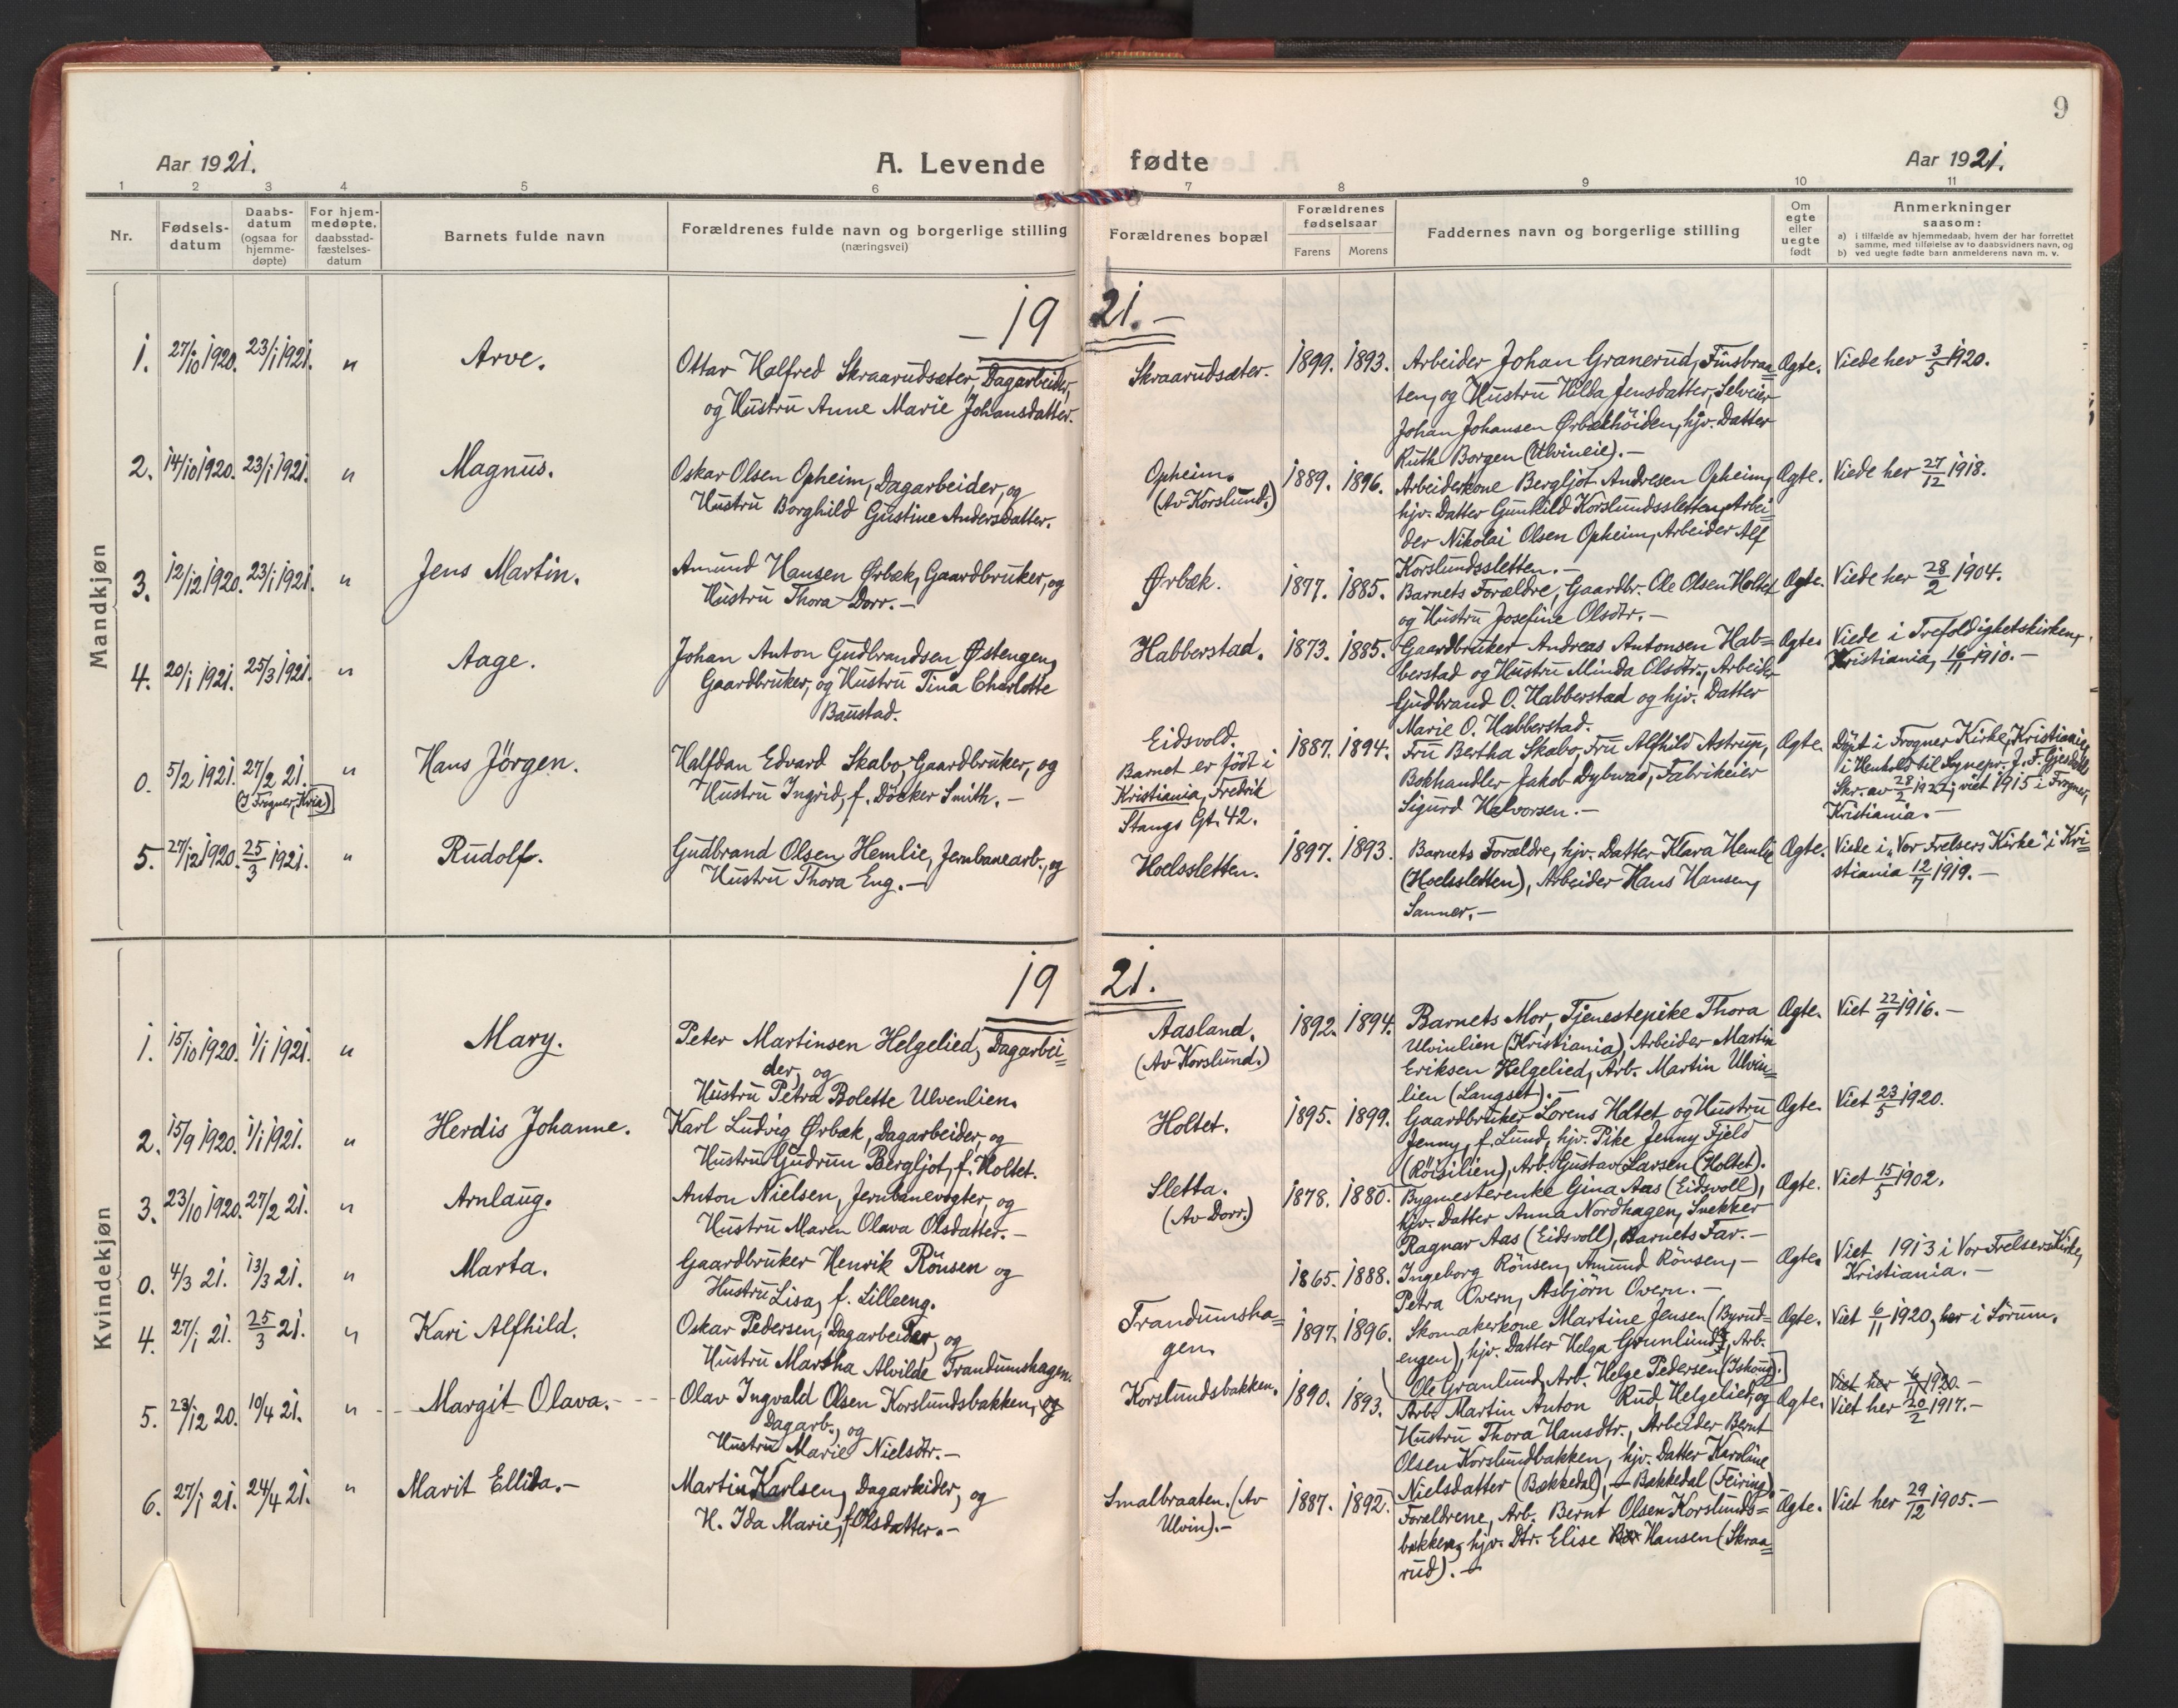 9
Aar 1921.
A. Levende fødte
Aar 1921.
1 2 3 4 5 6 7 8 9 10 11
Nr.
Fødsels-
datum
Daabs-
datum
(ogsaa for
hjemme-
døpte)
For hjem-
medøpte,
daabsstad-
fæstelses-
datum
Barnets fulde navn
Forældrenes fulde navn og borgerlige stilling
(næringsvei)
Forældrenes bopæl
Forældrenes
fødselsaar
Farens Morens
Faddernes navn og borgerlige stilling
Om
egte
eller
uegte
født
Anmerkninger
saasom:
a) i tilfælde av hjemmedaab, hvem der har forrettet
samme, med tilføielse av to daabsvidners navn, og
b) ved uegte fødte barn anmelderens navn m. v.
Mandkjøn
– 1921. –
1. 27/10 1920. 23/1 1921. " Arve.
Ottar Halfred Skraarudsæter, Dagarbeider,
og Hustru Anne Marie Johansdatter.
Skraarudsæter. 1899. 1893.
Arbeider Johan Granerud, Finsbraa=
ten, og Hustru Hilda Jensdatter, Selveier
Johan Johansen Ørbækhöiden, hjv. Datter
Ruth Borgen (Ulvineie). –
Ægte. Viede her 3/5 1920.
2. 14/10 1920. 23/1 1921. " Magnus.
Oskar Olsen Opheim, Dagarbeider, og
Hustru Borghild Gustine Andersdatter.
Opheim.
(Av Korslund.)
1889. 1896.
Arbeiderkone Bergljot Andresen Opheim,
hjv. Datter Gunhild Korslundssletten, Arbei=
der Nikolai Olsen Opheim, Arbeider Alf
Korslundssletten. –
Ægte. Viede her 27/12 1918.
3. 12/12 1920. 23/1 1921. " Jens Martin.
Amund Hansen Ørbæk, Gaardbruker, og
Hustru Thora Dorr. –
Ørbæk. 1877. 1885.
Barnets Forældre, Gaardbr. Ole Olsen Holtet
og Hustru Josefine Olsdtr. –
Ægte. Viede her 28/2 1904.
4. 20/1 1921. 25/3 1921. " Aage.
Johan Anton Gudbrandsen Østengen,
Gaardbruker, og Hustru Tina Charlotte
Baustad.
Habberstad. 1873. 1885.
Gaardbruker Andreas Antonsen Hab=
berstad og Hustru Minda Olsdtr., Arbeider
Gudbrand O. Habberstad og hjv. Datter
Marie O. Habberstad.
Ægte. Viede i Trefoldighetskirken,
Kristiania, 16/11 1910. –
0. 5/2 1921. 27/2 21. " Hans Jörgen.
(I Frogner, Kria)
Halfdan Edvard Skabo, Gaardbruker, og
Hustru Ingrid, f. Döcker Smith. –
Eidsvold.
Barnet er födt i
Kristiania, Fredrik
Stangs Gt. 42.
1887. 1894.
Fru Bertha Skabo, Fru Alfhild Astrup,
Bokhandler Jakob Dybwad, Fabrikeier
Sigurd Halvorsen. –
Ægte. Döpt i Frogner Kirke, Kristiania,
i Henhold til Sognepr. J. F. Gjesdahls
Skr. av 28/2 1921; viet 1915 i Frogner,
Kristiania. –
5. 27/12 1920. 25/3 1921. " Rudolf.
Gudbrand Olsen Hemlie, Jernbanearb., og
Hustru Thora Eng. –
Hoelssletten. 1897. 1893.
Barnets Forældre, hjv. Datter Klara Hemlie
(Hoelssletten), Arbeider Hans Hansen,
Sanner. –
Ægte. Viede i „Vor Frelsers Kirke" i Kri=
stiania 12/7 1919. –
Kvindekjøn
1921.
1. 15/10 1920. 1/1 1921. " Mary.
Peter Martinsen Helgelied, Dagarbei=
der, og
Hustru Petra Bolette Ulvenlien.
Aasland.
(Av Korslund.)
1892. 1894.
Barnets Mor, Tjenestepike Thora
Ulvinlien (Kristiania), Arbeider Martin
Eriksen Helgelied, Arb. Martin Ulvin=
lien (Langset). –
Ægte. Viet 22/9 1916. –
2. 15/9 1920. 1/1 1921. " Herdis Johanne.
Karl Ludvig Ørbæk, Dagarbeider, og
Hustru Gudrun Bergljot, f. Holtet.
Holtet. 1895. 1899.
Gaardbruker Lorens Holtet og Hustru
Jenny, f. Lund, hjv. Pike Jenny Fjeld
(Röisilien), Arb. Gustav Larsen (Holtet).
Ægte. Viet 23/5 1920.
3. 23/10 1920. 27/2 21. " Arnlaug.
Anton Nielsen, Jernbanevogter, og
Hustru Maren Olava Olsdatter. –
Sletta.
(Av Dorr.)
1878. 1880.
Bygmesterenke Gina Aas (Eidsvoll),
hjv. Datter Anna Nordhagen, Snekker
Ragnar Aas (Eidsvoll), Barnets Far. –
Ægte. Viet 15/5 1902.
0. 4/3 21. 13/3 21. " Marta.
Gaardbruker Henrik Rönsen og
Hustru Lisa, f. Lilleeng.
1865. 1888.
Ingeborg Rönsen, Amund Rönsen, –
Petra Overn, Asbjörn Overn. –
Ægte. Viet 1913 i Vor Frelsers Kirke,
Kristiania. –
4. 27/1 21. 25/3 21. " Kari Alfhild.
Oskar Pedersen, Dagarbeider, og
Hustru Martha Alvilde Trandumshagen.
Trandumsha=
gen.
1897. 1896.
Skomakerkone Martine Jensen (Byrud=
engen), hjv. Datter Helga Granlund, Arb.
Ole Granlund, Arb. Helge Pedersen
Ægte. Viet 6/11 1920, her i Sörum.
5. 23/12 20. 10/4 21. " Margit Olava. –
Olav Ingvald Olsen Korslundsbakken, og
Dagarb., og
Hustru Marie Nielsdtr. –
Korslundsbakken. 1890. 1893.
Arb. Martin Anton Rud Helgelied, og
Hustru Thora Hansdtr., Arbeider Bernt
Olsen Korslundbakken, hjv. Datter Karoline
Nielsdatter (Bækkedal), Bækkedal (Feiring). –
Ægte. Viet her 6/11 1920. –
Viet her 20/2 1917. –
6. 27/1 21. 24/4 21. " Marit Ellida. –
Martin Karlsen, Dagarbeider, og
H. Ida Marie, f. Olsdatter. –
Smalbraaten. (Av
Ulvin). –
1887. 1892.
Forældrene, Arb. Bernt Olsen Korslunds=
bakken, hjv. Dtr. Elise Hansen (Skraa=
rud). –
Ægte. Viet her 29/12 1905. –